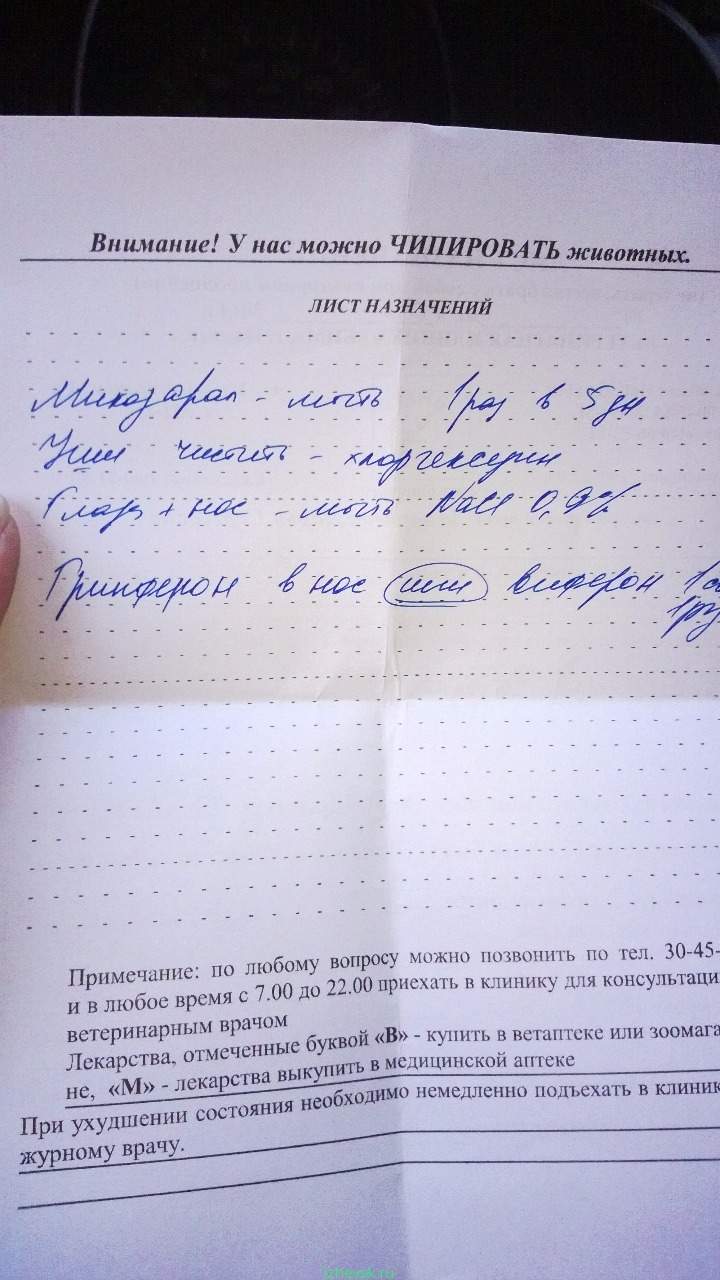 Внимание! У нас можно ЧИПИРОВАТЬ животных.
ЛИСТ НАЗНАЧЕНИЙ
Микозарал - мыть 1 раз в 5 дн
Уши чистить - хлоргексидин
Глаза + нос - мыть NaCl 0,9%
Грипферон в нос или виферон 1
Примечание: по любому вопросу можно позвонить по тел. 30-45-
и в любое время с 7.00 до 22.00 приехать в клинику для консультаци
ветеринарным врачом
Лекарства, отмеченные буквой «В» - купить в ветаптеке или зоомага
не, «М» - лекарства выкупить в медицинской аптеке
При ухудшении состояния необходимо немедленно подъехать в клиник
журному врачу.